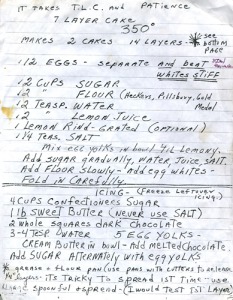 IT TAKES T.L.C. AND PATIENCE
7 LAYER CAKE
350°
MAKES 2 CAKES 14 LAYERS - see bottom page
12 EGGS - SEPARATE AND BEAT WHITES STIFF
2 CUPS SUGAR
2 " FLOUR (Heckers, Pillsbury, Gold Medal
2 TEASP. WATER
2 " LEMON JUICE
1 LEMON RIND - GRATED (OPTIONAL)
1/4 TEAS. SALT
MIX EGG YOLKS IN BOWL TIL LEMONY.
ADD SUGAR GRADUALLY, WATER, JUICE, SALT.
ADD FLOUR SLOWLY - ADD EGG WHITES -
FOLD IN CAREFULLY
ICING - (FREEZE LEFTOVER ICING)
4 CUPS CONFECTIONERS SUGAR
1 lb SWEET BUTTER (NEVER USE SALT)
2 WHOLE SQUARES DARK CHOCOLATE
3-4 TEASP WATER 5 EGG YOLKS -
CREAM BUTTER IN BOWL - ADD MELTED CHOCOLATE.
ADD SUGAR ALTERNATELY WITH EGG YOLKS
GREASE & FLOUR PAN (USE PANS WITH CUTTERS TO RELEASE
LAYERS - ITS TRICKY TO SPREAD 1ST TIME - USE
SPOONFUL & SPREAD - (I WOULD TEST 1 LAYER)